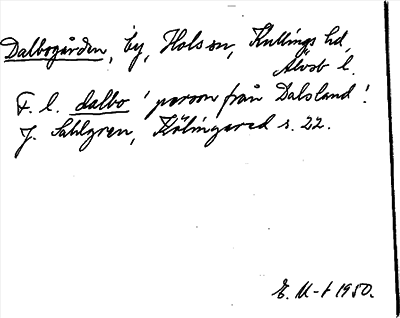 Dalbogården, by, Hols sn, Kullings hd,
Älvsb l.
F. l. dalbo 'person från Dalsland'.
J. Sahlgren, Kölingared s. 22.
E. M-t 1950.